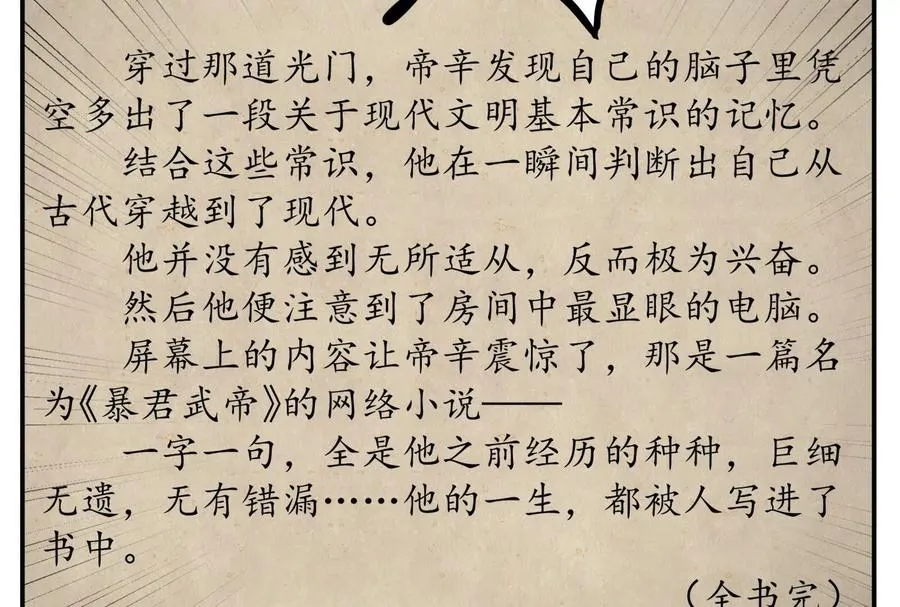 穿过那道光门，帝辛发现自己的脑子里凭
空多出了一段关于现代文明基本常识的记忆。
结合这些常识，他在一瞬间判断出自己从
古代穿越到了现代。
他并没有感到无所适从，反而极为兴奋。
然后他便注意到了房间中最显眼的电脑。
屏幕上的内容让帝辛震惊了，那是一篇名
为《暴君武帝》的网络小说——
一字一句，全是他之前经历的种种，巨细
无遗，无有错漏……他的一生，都被人写进了
书中。
（全书完）